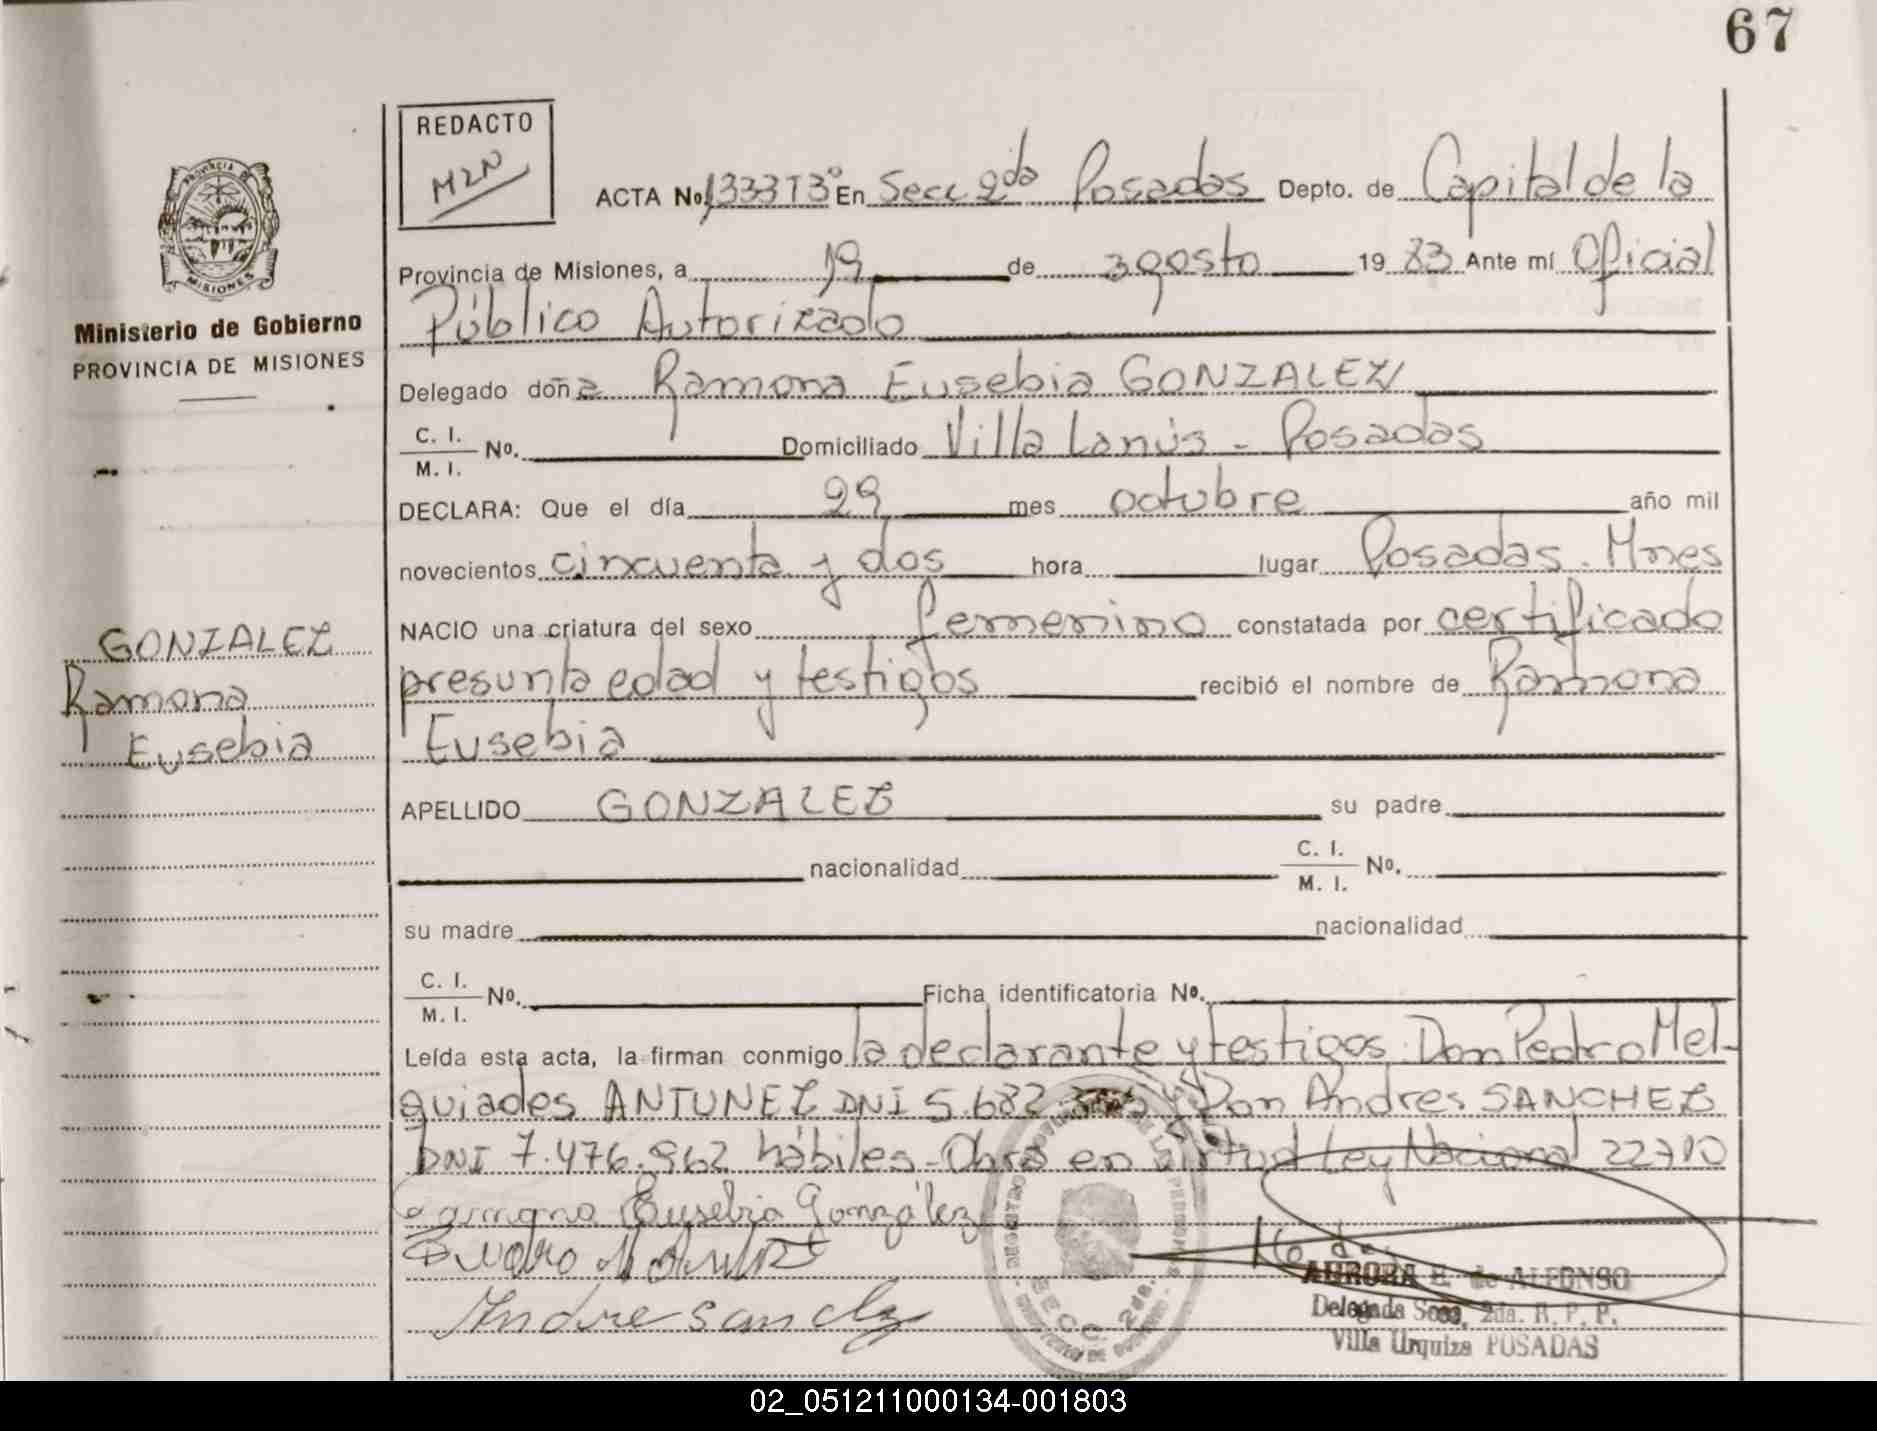 67
REDACTO
MZN
ACTA No. 1333T3° En Secc 2da Posadas Depto. de Capital de la
PROVINCIA DE
MISIONES
Provincia de Misiones, a 19 de agosto 1983 Ante mí Oficial
Ministerio de Gobierno
PROVINCIA DE MISIONES
Público Autorizado
Delegado doña Ramona Eusebia GONZALEZ
C. I.
M. I. No. Domiciliado Villa Lanús - Posadas
DECLARA: Que el día 29 mes octubre año mil
novecientos cincuenta y dos hora lugar Posadas. Mnes
NACIO una criatura del sexo femenino constatada por certificado
GONZALEZ
Ramona
Eusebia
presunta edad y testigos recibió el nombre de Ramona
Eusebia
APELLIDO GONZALEZ su padre
nacionalidad C. I.
M. I. No.
su madre nacionalidad
C. I.
M. I. No. Ficha identificatoria No.
Leída esta acta, la firman conmigo la declarante y testigos Don Pedro Mel-
quiades ANTUNEZ DNI 5.682. y Don Andres SANCHEZ
DNI 7.476.962 hábiles - Obra en virtud Ley Nacional 22710
Ramona Eusebia González
Andre sanchez
SECC. 2da.
AURORA E. de ALFONSO
Delegada Secc. 2da. R. P. P.
Villa Urquiza POSADAS
02_051211000134-001803